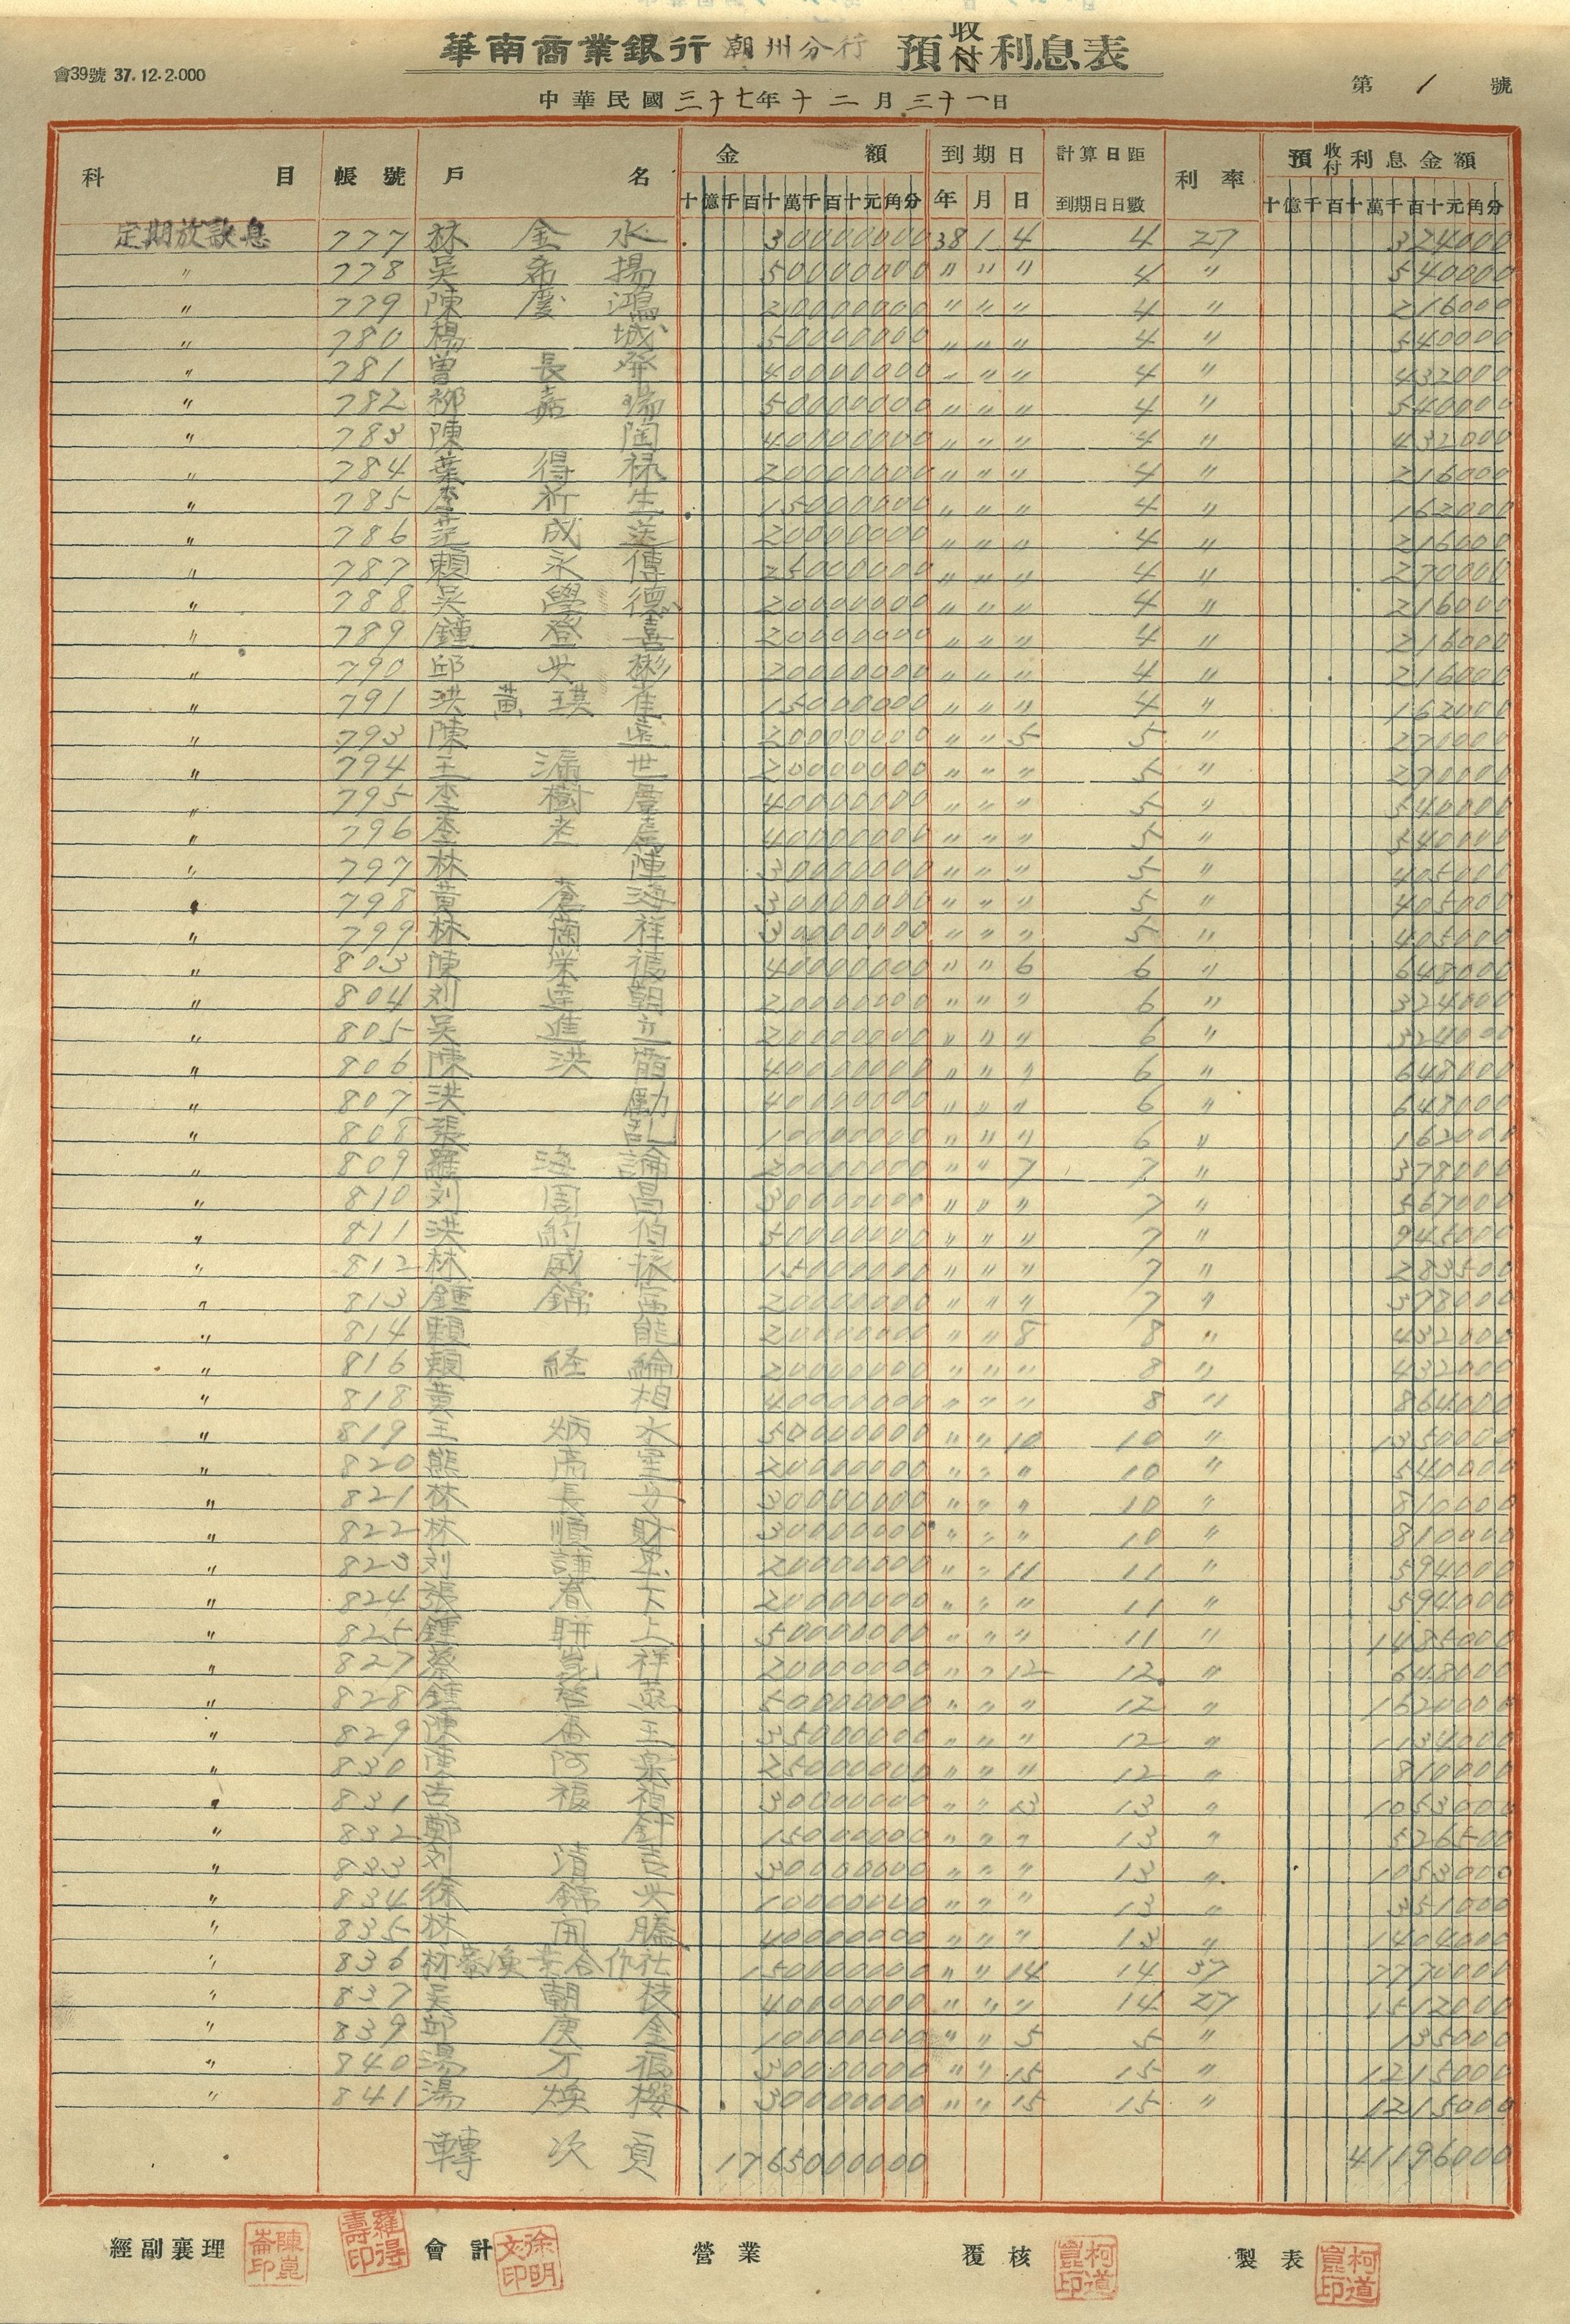 華南商業銀行 潮州分行 預收付利息表
會39號 37.12.2.000
第 1 號
中華民國三十七年十二月三十一日
科目 帳號 戶名 金額 到期日 計算日距 利率 預收付利息金額
十億千百十萬千百十元角分 年 月 日 到期日日數 十億千百十萬千百十元角分
定期放款息 777 林金水 30000000 38 1 4 4 27 324000
〃 778 吳希揚 50000000 〃 〃 〃 4 〃 540000
〃 779 陳慶鴻 20000000 〃 〃 〃 4 〃 216000
〃 780 楊城 50000000 〃 〃 〃 4 〃 540000
〃 781 曾長發 40000000 〃 〃 〃 4 〃 432000
〃 782 柳嘉瑞 50000000 〃 〃 〃 4 〃 540000
〃 783 陳陶 40000000 〃 〃 〃 4 〃 432000
〃 784 葉得祿 20000000 〃 〃 〃 4 〃 216000
〃 785 李新生 15000000 〃 〃 〃 4 〃 162000
〃 786 范成送 20000000 〃 〃 〃 4 〃 216000
〃 787 賴永傳 25000000 〃 〃 〃 4 〃 270000
〃 788 吳學德 20000000 〃 〃 〃 4 〃 216000
〃 789 鍾登喜 20000000 〃 〃 〃 4 〃 216000
〃 790 邱世彬 20000000 〃 〃 〃 4 〃 216000
〃 791 洪黃瑛雀 15000000 〃 〃 〃 4 〃 162000
〃 793 陳遠 20000000 〃 〃 5 5 〃 270000
〃 794 王漏世 20000000 〃 〃 〃 5 〃 270000
〃 795 李樹 40000000 〃 〃 〃 5 〃 540000
〃 796 李老 40000000 〃 〃 〃 5 〃 540000
〃 797 林陣 30000000 〃 〃 〃 5 〃 405000
〃 798 黃蒼海 30000000 〃 〃 〃 5 〃 405000
〃 799 林蘭祥 30000000 〃 〃 〃 5 〃 405000
〃 803 陳榮福 40000000 〃 〃 6 6 〃 648000
〃 804 刘達朝 20000000 〃 〃 〃 6 〃 324000
〃 805 吳進立 20000000 〃 〃 〃 6 〃 324000
〃 806 陳洪龍 40000000 〃 〃 〃 6 〃 648000
〃 807 洪勳 40000000 〃 〃 〃 6 〃 648000
〃 808 張乱 10000000 〃 〃 〃 6 〃 162000
〃 809 羅海論 20000000 〃 〃 7 7 〃 378000
〃 810 刘周昌 30000000 〃 〃 〃 7 〃 567000
〃 811 洪伯 50000000 〃 〃 〃 7 〃 945000
〃 812 林威振 15000000 〃 〃 〃 7 〃 283500
〃 813 鍾錦 20000000 〃 〃 〃 7 〃 378000
〃 814 賴能 20000000 〃 〃 8 8 〃 432000
〃 816 賴経綸 20000000 〃 〃 〃 8 〃 432000
〃 818 黃相 40000000 〃 〃 〃 8 〃 864000
〃 819 王炳水 50000000 〃 〃 10 10 〃 1350000
〃 820 熊 20000000 〃 〃 〃 10 〃 540000
〃 821 林長 30000000 〃 〃 〃 10 〃 810000
〃 822 林順財 30000000 〃 〃 〃 10 〃 810000
〃 823 刘謹 20000000 〃 〃 11 11 〃 594000
〃 824 張春下 20000000 〃 〃 〃 11 〃 594000
〃 825 鍾上 50000000 〃 〃 〃 11 〃 1485000
〃 827 蔡崑祥 20000000 〃 〃 12 12 〃 648000
〃 828 鍾 50000000 〃 〃 〃 12 〃 1620000
〃 829 陳玉 35000000 〃 〃 〃 12 〃 1134000
〃 830 陳阿 25000000 〃 〃 〃 12 〃 810000
〃 831 古福禎 30000000 〃 〃 13 13 〃 1053000
〃 832 鄭 15000000 〃 〃 〃 13 〃 526500
〃 833 刘清吉 30000000 〃 〃 〃 13 〃 1053000
〃 834 徐錦世 10000000 〃 〃 〃 13 〃 351000
〃 835 林開騰 40000000 〃 〃 〃 13 〃 1404000
〃 836 林寮漁業合作社 150000000 〃 〃 14 14 37 7770000
〃 837 吳朝枝 40000000 〃 〃 〃 14 27 1512000
〃 839 邱庚金 10000000 〃 〃 5 5 〃 135000
〃 840 湯才福 30000000 〃 〃 15 15 〃 1215000
〃 841 湯煥樱 30000000 〃 〃 15 15 〃 1215000
轉次頁 1765000000 41196000
經副襄理 陳崑崙印 羅得壽印 會計 徐明文印 營業 覆核 柯道崑印 製表 柯道崑印